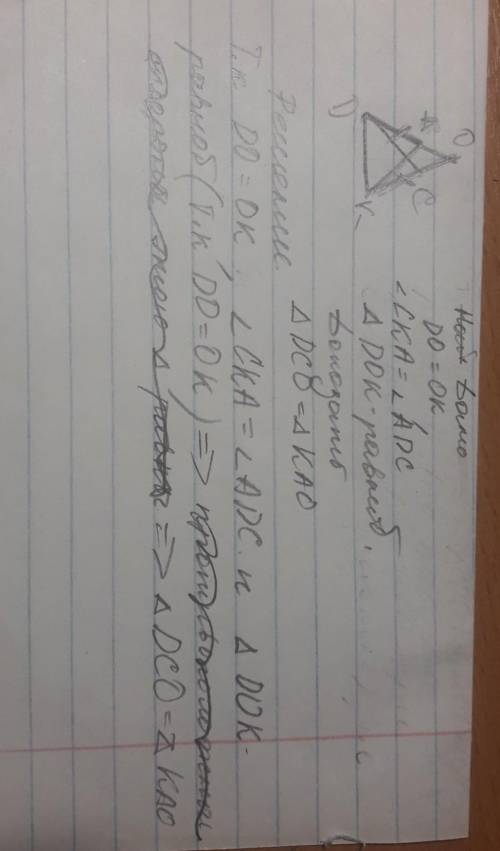 Дано
DO = OK
∠CKA = ∠ADC
△ DOK - равноб.
Доказать
△ DCO = △ KAO
A
O
D
C
K
Решение
Т.к. DO = OK, ∠CKA = ∠ADC и △ DOK -
равноб (т.к DO = OK) => противоположные
=> △ DCO = △ KAO